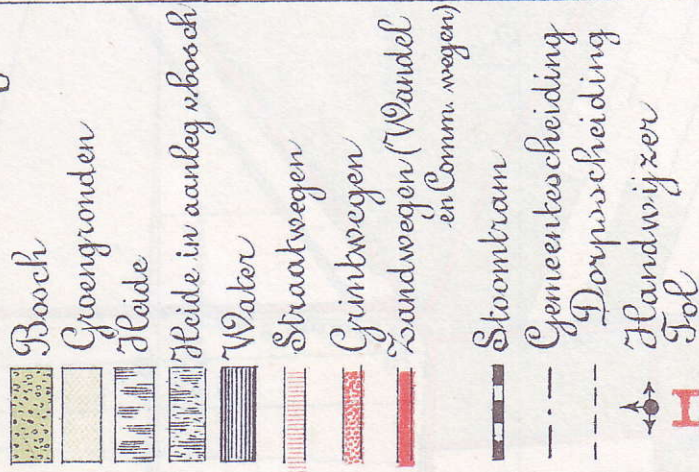 Bosch
Groengronden
Heide
Heide in aanleg v. bosch
Water
Straatwegen
Grintwegen
Zandwegen (Wandel
en Comm. wegen)
Stoomtram
Gemeentescheiding
Dorpsscheiding
Handwijzer
Tol